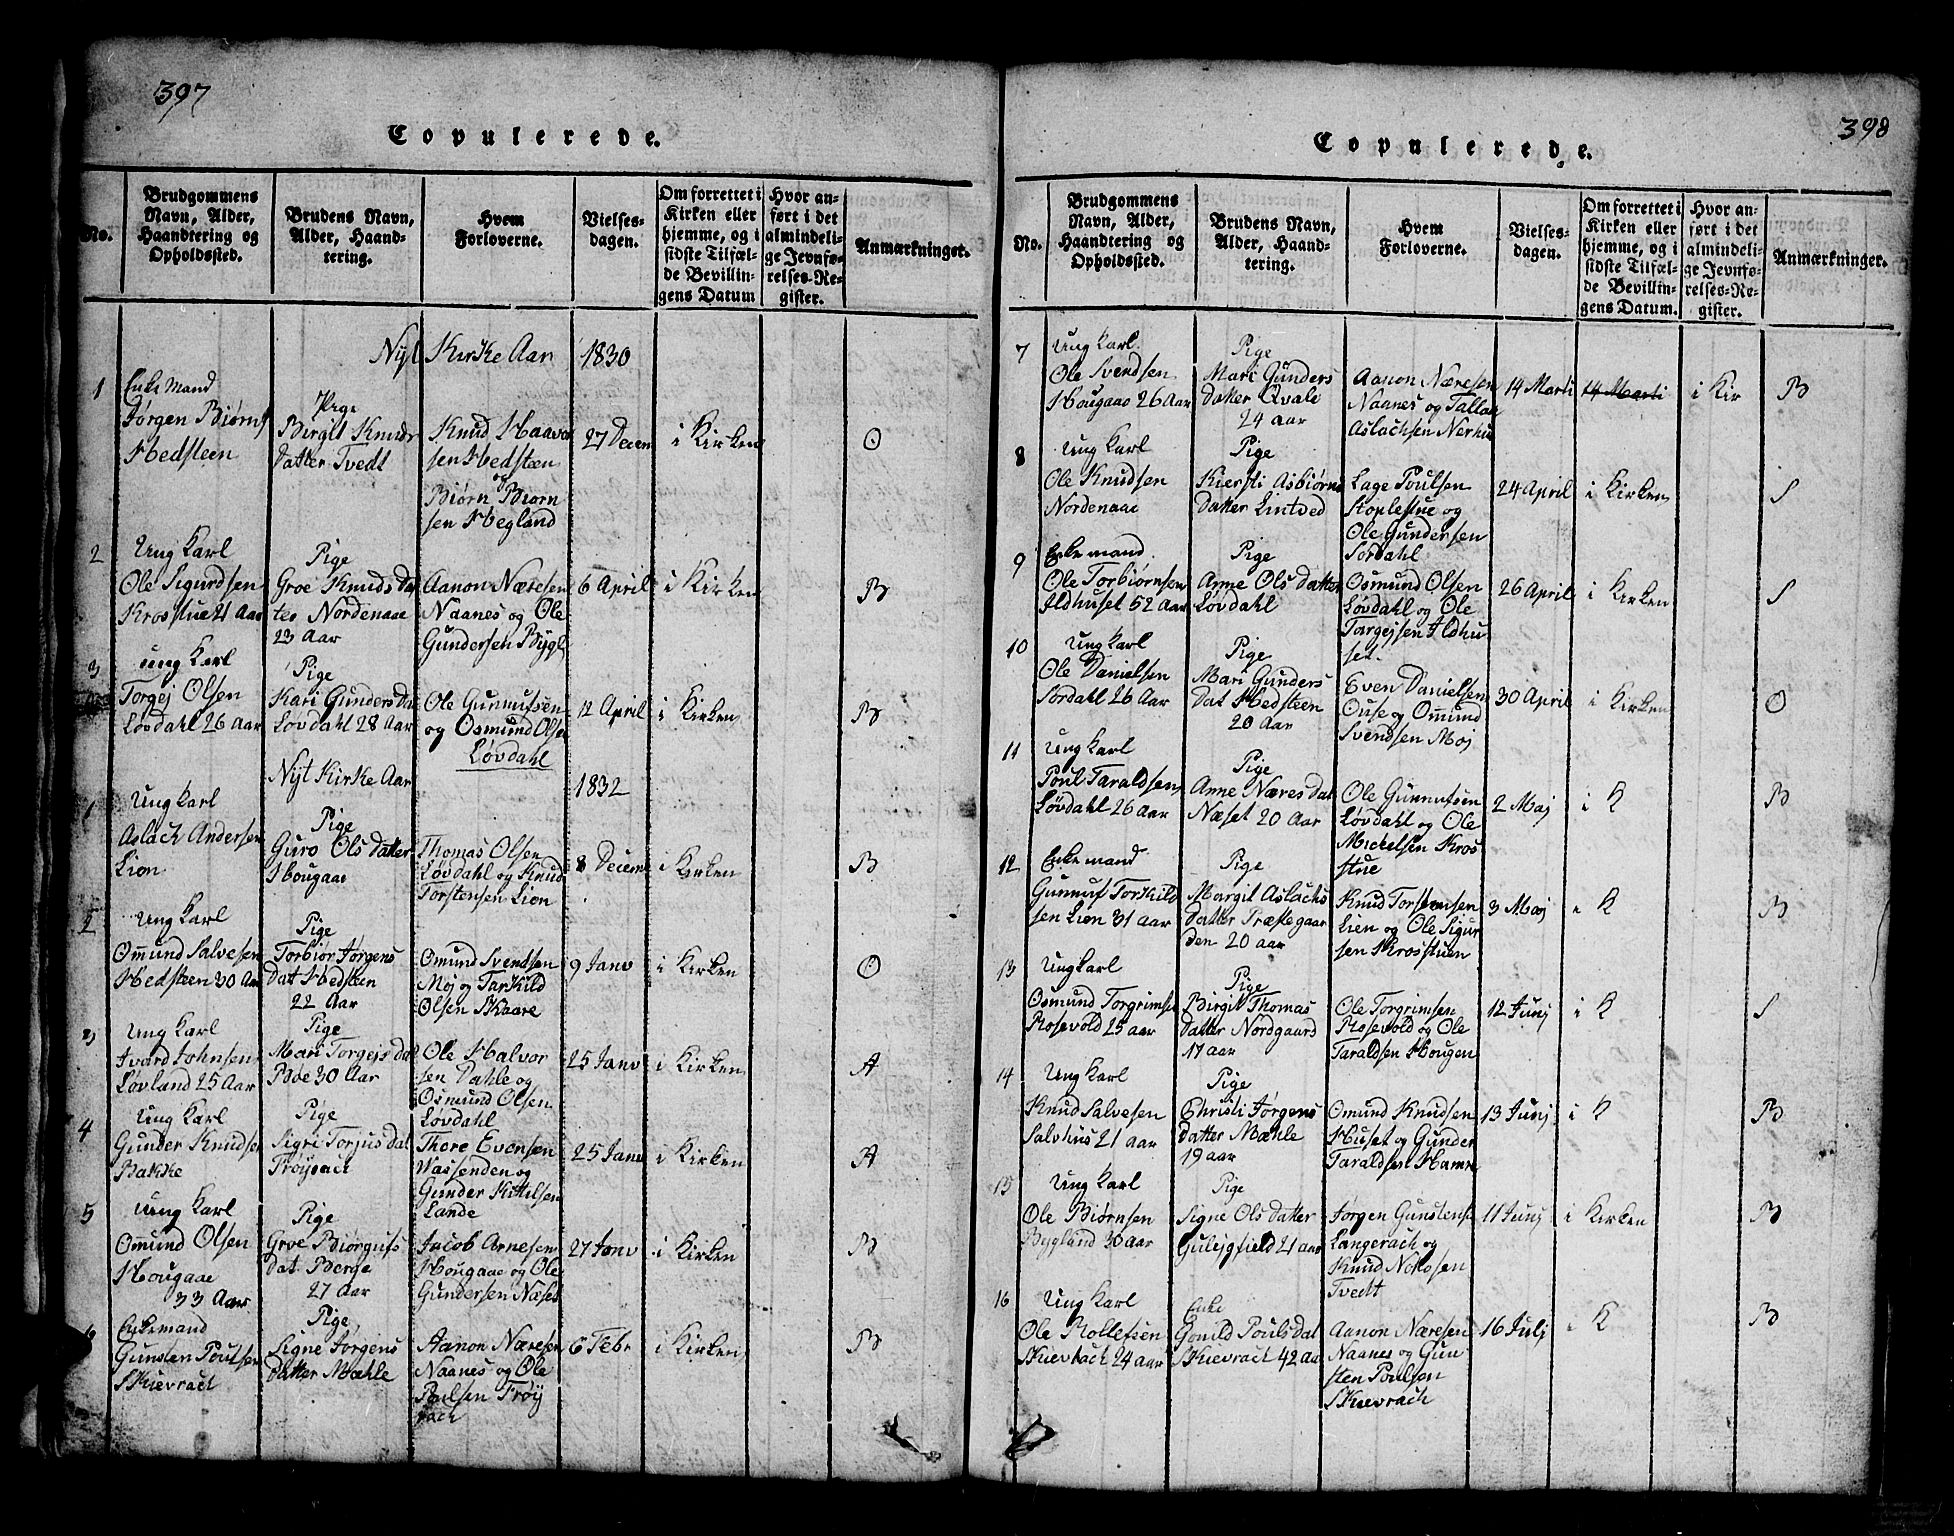 397
Copulerede.
No.
Brudgommens Navn, Alder, Haandtering og Opholdssted.
Brudens Navn, Alder, Haandtering.
Hvem Forloverne.
Vielsesdagen.
Om forrettet i Kirken eller hjemme, og i sidste Tilfælde Bevillingens Datum
Hvor anført i det almindelige Jevnførelses-Register.
Anmærkninger.
Nyt Kirke Aar 1830
1
Enke Mand
Jørgen Biørns
Hedsteen
Pige
Birgit Knuds
Datter Tvedt
Knud Haavor
sen Hedsteen
og
Biørn Biørn
sen Hegland
27 Decem
i Kirken
O
2
Ung Karl
Ole Sigurdsen
Krosstue 21 Aar
Pige
Groe Knuds Dat
ter Nordenaae
23 Aar
Aanon Næresen
Naanes og Ole
Gundersen Bygl
6 April
i Kirken
B
3
ung Karl
Torgej Olsen
Løvdahl 26 Aar
Pige
Kari Gunders Da
Løvdahl 28 Aar
Ole Gunnufsen
og Osmund Olsen
Løvdahl
12 April
i Kirken
B
Nyt Kirke Aar 1832
1
Ung Karl
Aslach Andersen
Lion
Pige
Guro Ols Datter
Hougaae
Thomas Olsen
Løvdahl og Knud
Torstensen Lion
8 Decem
i Kirken
B
2
Ung Karl
Omund Salvesen
Hedsteen 30 Aar
Pige
Torbiør Jørgens
Dat Hedsteen
22 Aar
Omund Svendsen
Moj og Tarkild
Olsen Skaare
9 Janv
i Kirken
O
3
Ung Karl
Ivard Johnsen
Løvland 25 Aar
Pige
Mari Torgejs Dat
Boe 30 Aar
Ole Halvor
sen Dahle og
Osmund Olsen
Løvdahl
25 Janv
i Kirken
A
4
Ung Karl
Gunder Knudsen
Bakke
Pige
Sigri Torjus Dat
Frøysach
Thore Evensen
Wassenden og
Gunder Kittilsen
Lande
25 Janv
i Kirken
A
5
ung Karl
Omund Olsen
Hougaae
33 Aar
Pige
Groe Biørgufs
Dat. Berge
27 Aar
Jacob Arnesen
Hougaae og Ole
Gundersen Næset
27 Janv
i Kirken
B
6
Enkemand
Gunsten Poulsen
Skievrach
Pige
Signe Jørgens
Datter Mæhle
Aanon Næresen
Naanes og Ole
Poulsen Frøy
rach
6 Febr
i Kirken
B
398
Copulerede.
No.
Brudgommens Navn, Alder, Haandtering og Opholdssted.
Brudens Navn, Alder, Haandtering.
Hvem Forloverne.
Vielsesdagen.
Om forrettet i Kirken eller hjemme, og i sidste Tilfælde Bevillingens Datum.
Hvor anført i det almindelige Jevnførelses-Register.
Anmærkninger.
7
Ung Karl.
Ole Svendsen
Hougaae 26 Aar
Pige
Mari Gunders
Datter Qvale
24 aar
Aanon Næresen
Naanes og Tallak
Aslachsen Nerhu
14 Marti
14 Marti
i Kir
B
8
Ung Karl
Ole Knudsen
Nordenaae
Pige
Kiersti Asbiørns
Datter Lintved
Lage Poulsen
Stoplestue og
Ole Gundersen
Sordahl
24 April
i Kirken
S
9
Enke mand.
Ole Torbiørnsen
Ildhuset 52 Aar
Pige
Anne Ols Datter
Løvdahl
Osmund Olsen
Løvdahl og Ole
Torgejsen Ildhu
set.
26 April
i Kirken
S
10
Ung Karl
Ole Danielsen
Sordahl 26 Aar
Pige
Mari Gunders
Dat Hedsteen
20 Aar
Even Danielsen
Ouse og Omund
Svendsen Moj
30 April
i Kirken
O
11
Ung Karl
Poul Taraldsen
Løvdahl 26 aar
Pige
Anne Næres Dat
Næset 20 Aar
Ole Gunnufsen
Løvdahl og Ole
Mickelsen Kros
stue
2 Maj
i K
B
12
Enke mand
Gunnuf Torkild
sen Lien 31 aar
Pige
Margit Aslachs
Datter Træstegaar
den 20 aar
Knud Torstensen
Lien og Ole Sigur
sen Krosstuen
3 Maj
i K
B
13
Ung Karl
Osmund Torgrimse
Rosevold 25 aar
Pige
Birgit Thomas
Datter Nordgaard
17 aar
Ole Torgrimsen
Rosevold og Ole
Taraldsen Hougen
12 Junj
i K
S
14
Ung Karl
Knud Salvesen
Salvhus 21 aar
Pige
Christi Jørgens
datter Mæhle
19 aar
Omund Knudsen
Huset og Gunder
Taraldsen Hamre
13 Junj
i K
B
15
Ung Karl
Ole Biørnsen
Bygland 30 Aar
Pige
Signe Ols Datter
Gulejgfield 21 aar
Jørgen Gunstense
Langerach og
Knud Nerisen
Tvedt
11 Junj
i Kirken
B
16
Ung Karl
Ole Rollefsen
Skievrach 24 aar
Enke
Gonild Pouls Dat
Skievrach 42 Aar
Aanon Næresen
Naanes og Gun
sten Poulsen
Skievrach
16 Julj
i K
B